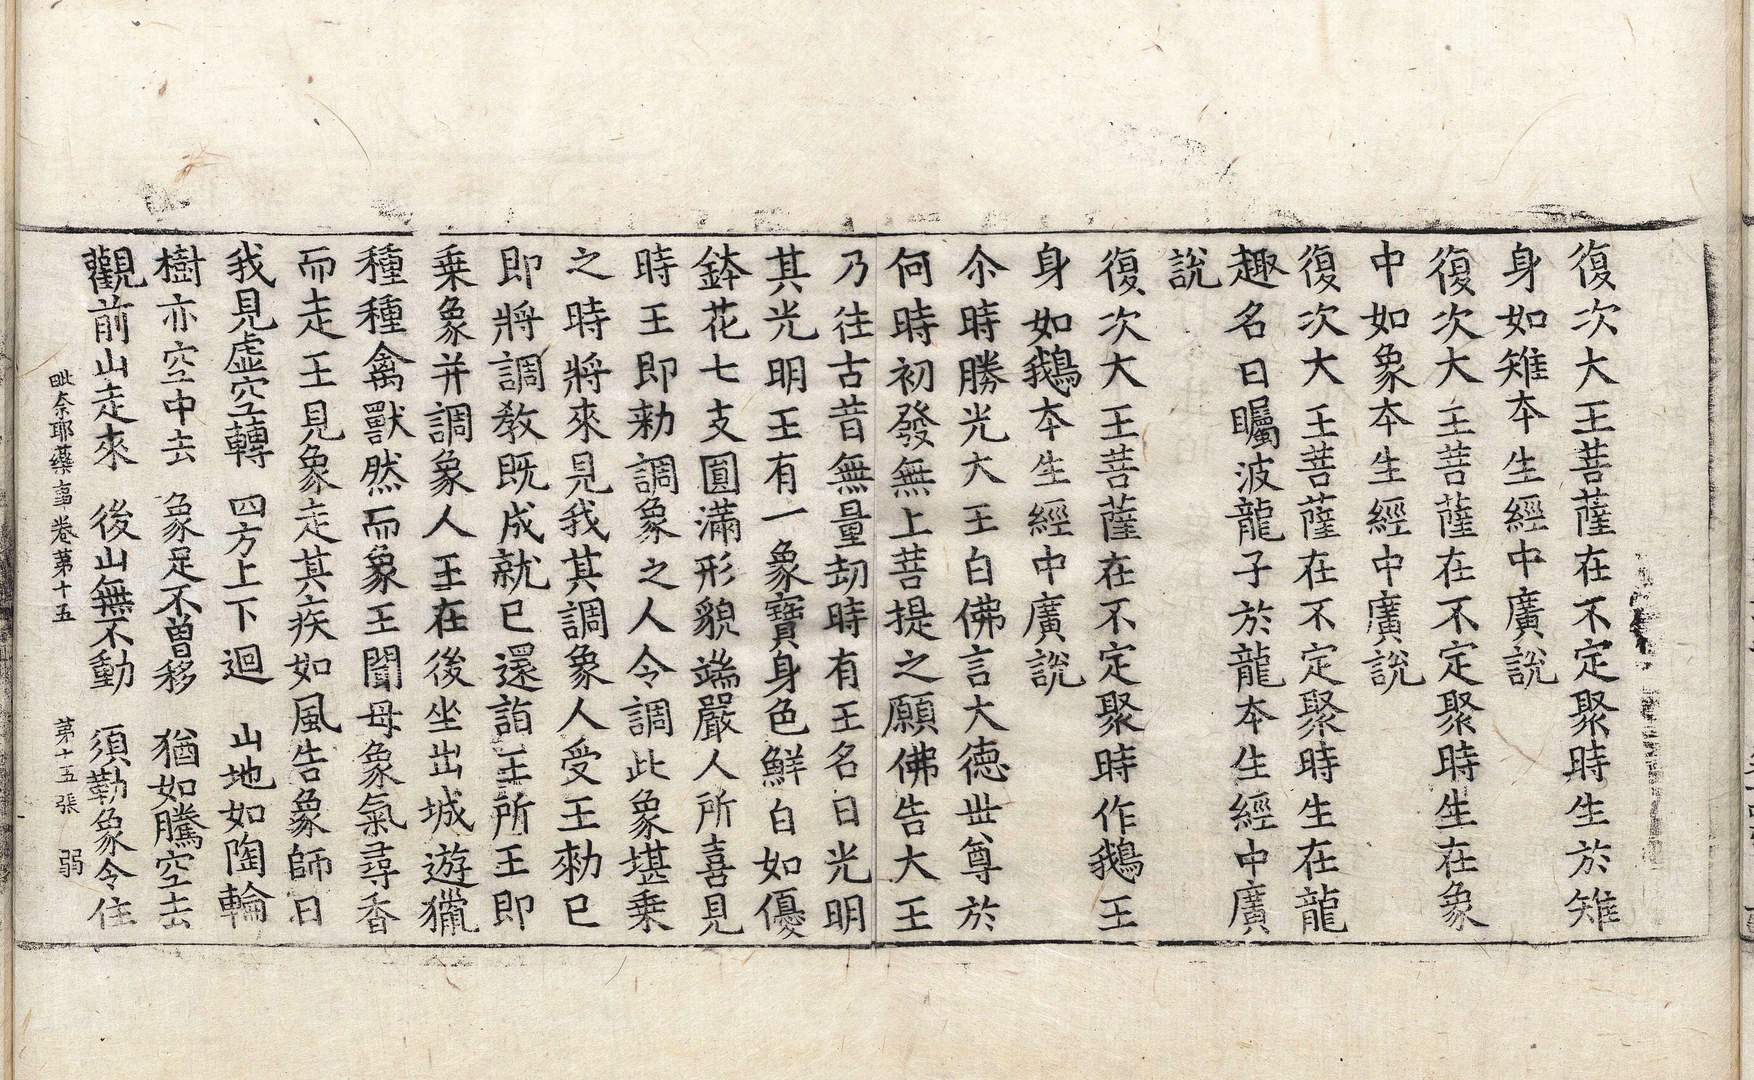 復次大王菩薩在不定聚時生於雉
身如雉本生經中廣說
復次大王菩薩在不定聚時生在象
中如象本生經中廣說
復次大王菩薩在不定聚時生在龍
趣名曰矚波龍子於龍本生經中廣
說
復次大王菩薩在不定聚時作鵝王
身如鵝本生經中廣說
尒時勝光大王白佛言大德世尊於
何時初發無上菩提之願佛告大王
乃往古昔無量劫時有王名曰光明
其光明王有一象寶身色鮮白如優
鉢花七支圓滿形貌端嚴人所喜見
時王即勅調象之人令調此象堪乗
之時將來見我其調象人受王勅已
即將調教既成就已還詣王所王即
乗象并調象人王在後坐出城遊獵
種種禽獸然而象王聞母象氣尋香
而走王見象走其疾如風告象師曰
我見虛空轉 四方上下迴 山地如陶輪
樹亦空中去 象足不曾移 猶如騰空去
觀前山走來 後山無不動 須勒象令住
毗奈耶藥事卷第十五 第十五張 弱